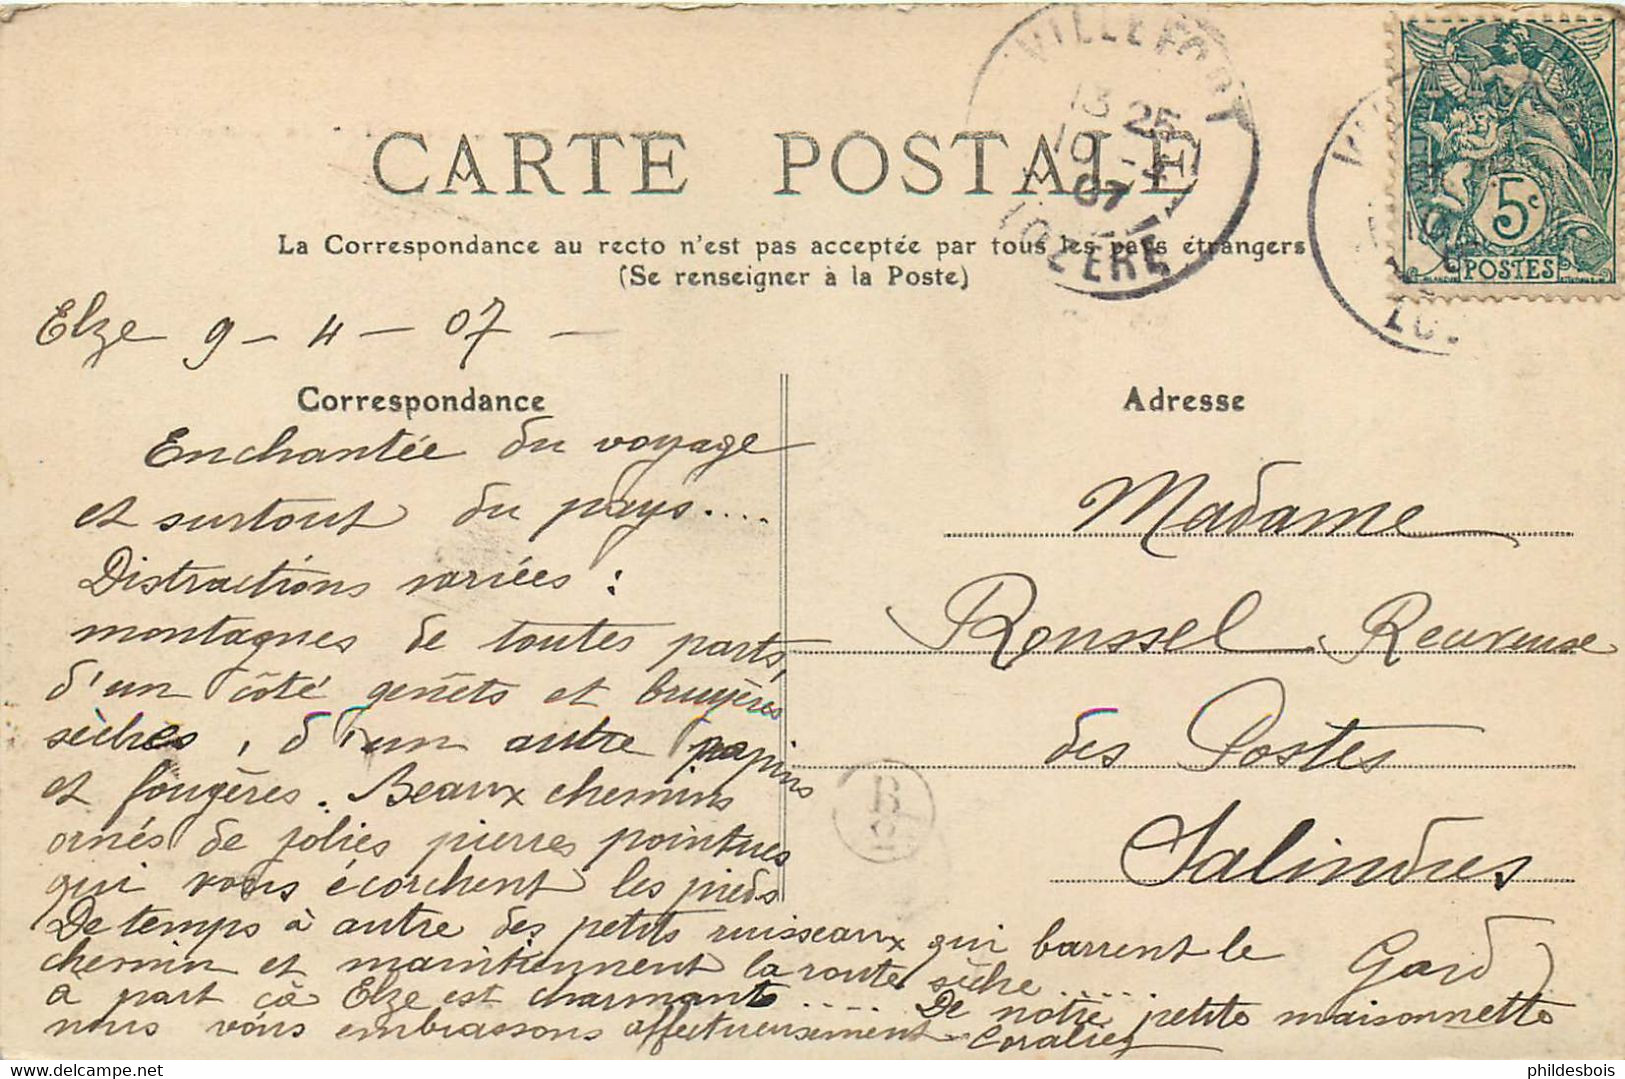 CARTE POSTALE
La Correspondance au recto n'est pas acceptée par tous les pays étrangers
(Se renseigner à la Poste)
VILLEFORT
13 25
10 - 4
07
LOZERE
5c
POSTES
Elze 9 - 4 - 07 -
Correspondance
Enchantée du voyage
et surtout du pays....
Distractions variées :
montagnes de toutes parts,
d'un côté genêts et bruyères
sèches, d'un autre papins
et fougères. Beaux chemins
ornés de jolies pierres pointues
qui vous écorchent les pieds
De temps à autre des petits ruisseaux qui barrent le
chemin et maintiennent la route sèche.....
à part çà Elze est charmant..... De notre petite maisonnette
nous vous embrassons affectueusement
Coralie
Adresse
Madame
Roussel Receveuse
des Postes
Salindres
Gard
B
2
www.delcampe.net
phildesbois